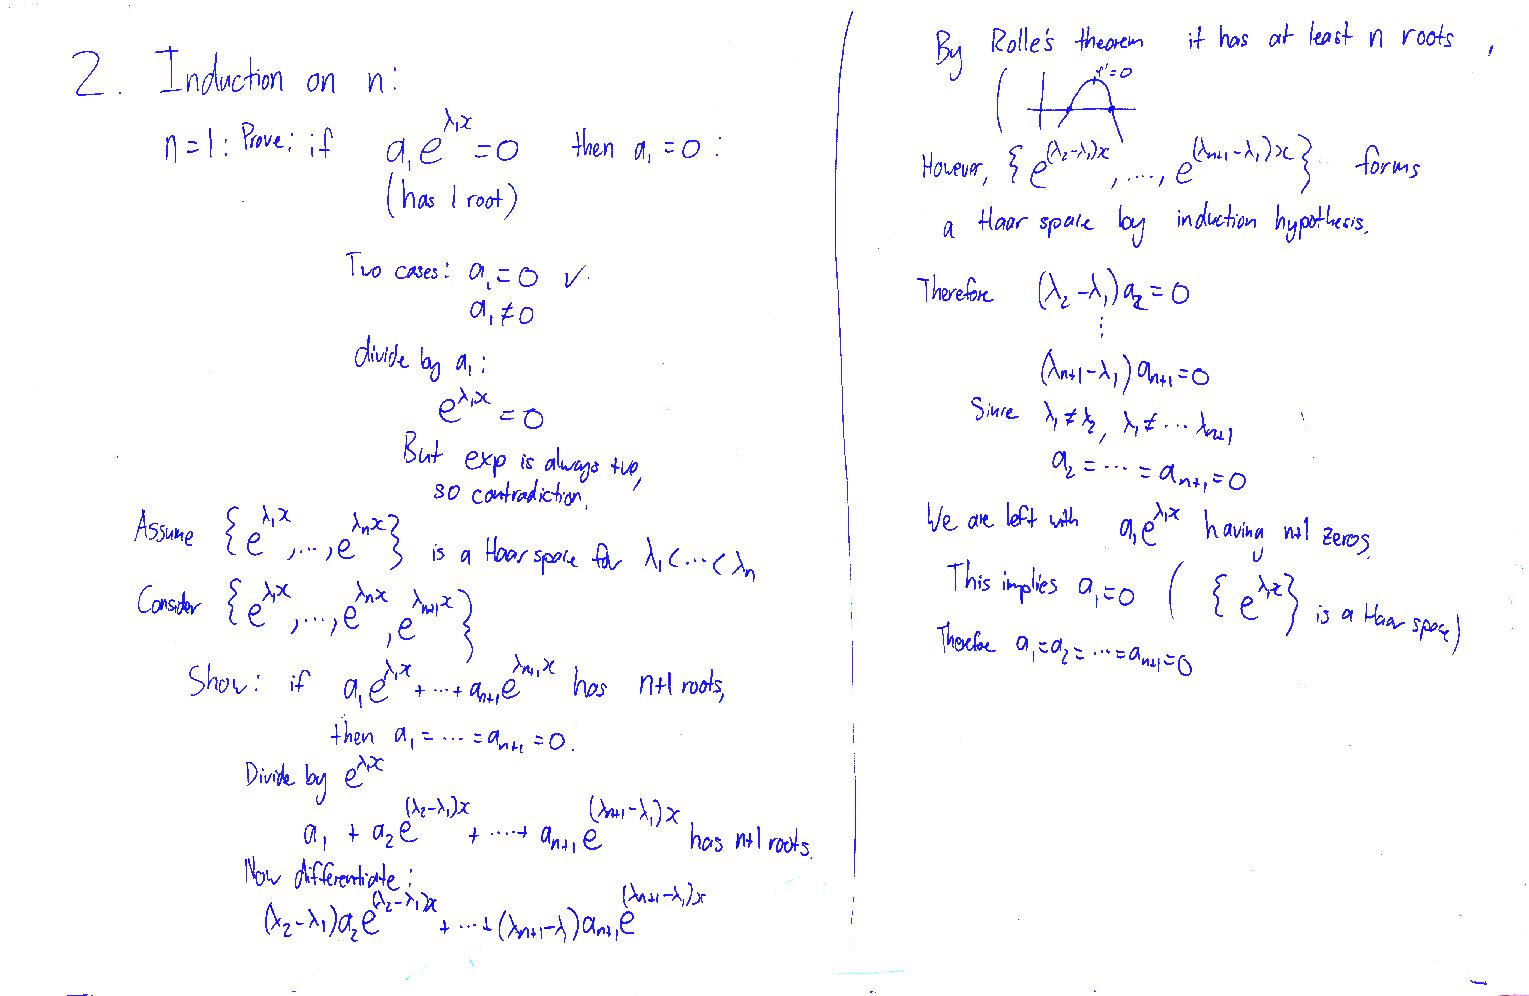 2. Induction on n:
n=1: Prove: if a₁e^{λ₁x}=0 then a₁=0:
(has 1 root)
Two cases: a₁=0 ✓.
a₁≠0
divide by a₁:
e^{λ₁x}=0
But exp is always +ve,
so contradiction.
Assume {e^{λ₁x},...,e^{λₙx}} is a Haar space for λ₁<...<λₙ
Consider {e^{λ₁x},...,e^{λₙx},e^{λₙ₊₁x}}
Show: if a₁e^{λ₁x}+...+aₙ₊₁e^{λₙ₊₁x} has n+1 roots,
then a₁=...=aₙ₊₁=0.
Divide by e^{λ₁x}
a₁+a₂e^{(λ₂-λ₁)x}+...+aₙ₊₁e^{(λₙ₊₁-λ₁)x} has n+1 roots.
Now differentiate:
(λ₂-λ₁)a₂e^{(λ₂-λ₁)x}+...+(λₙ₊₁-λ)aₙ₊₁e^{(λₙ₊₁-λ₁)x}
By Rolle's theorem it has at least n roots,
( f'=0
However, {e^{(λ₂-λ₁)x},...,e^{(λₙ₊₁-λ₁)x}} forms
a Haar space by induction hypothesis.
Therefore (λ₂-λ₁)a₂=0
⋮
(λₙ₊₁-λ₁)aₙ₊₁=0
Since λ₁≠λ₂, λ₁≠...λₙ₊₁
a₂=...=aₙ₊₁=0
We are left with a₁e^{λ₁x} having n+1 zeros.
This implies a₁=0 ({e^{λ₁x}} is a Haar space)
Therefore a₁=a₂=...=aₙ₊₁=0